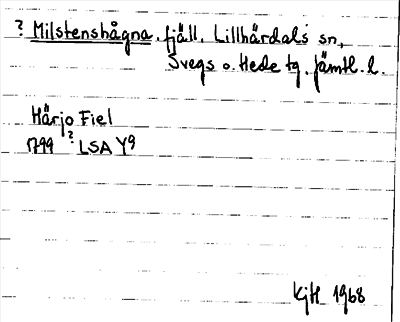 ? Milstenshågna, fjäll, Lillhärdals sn,
Svegs o. Hede tg, Jämtl. l.
Härjo Fiel
1799 ? LSA Y9
KjH 1968